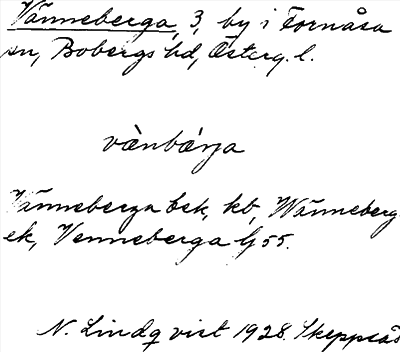 Vänneberga, 3, by i Fornåsa
sn, Bobergs hd, Österg. l.
vä̀nbárja
Vänneberga bsk, kb, Wänneberg
ek, Venneberga G 55.
N. Lindqvist 1928. Skeppsås